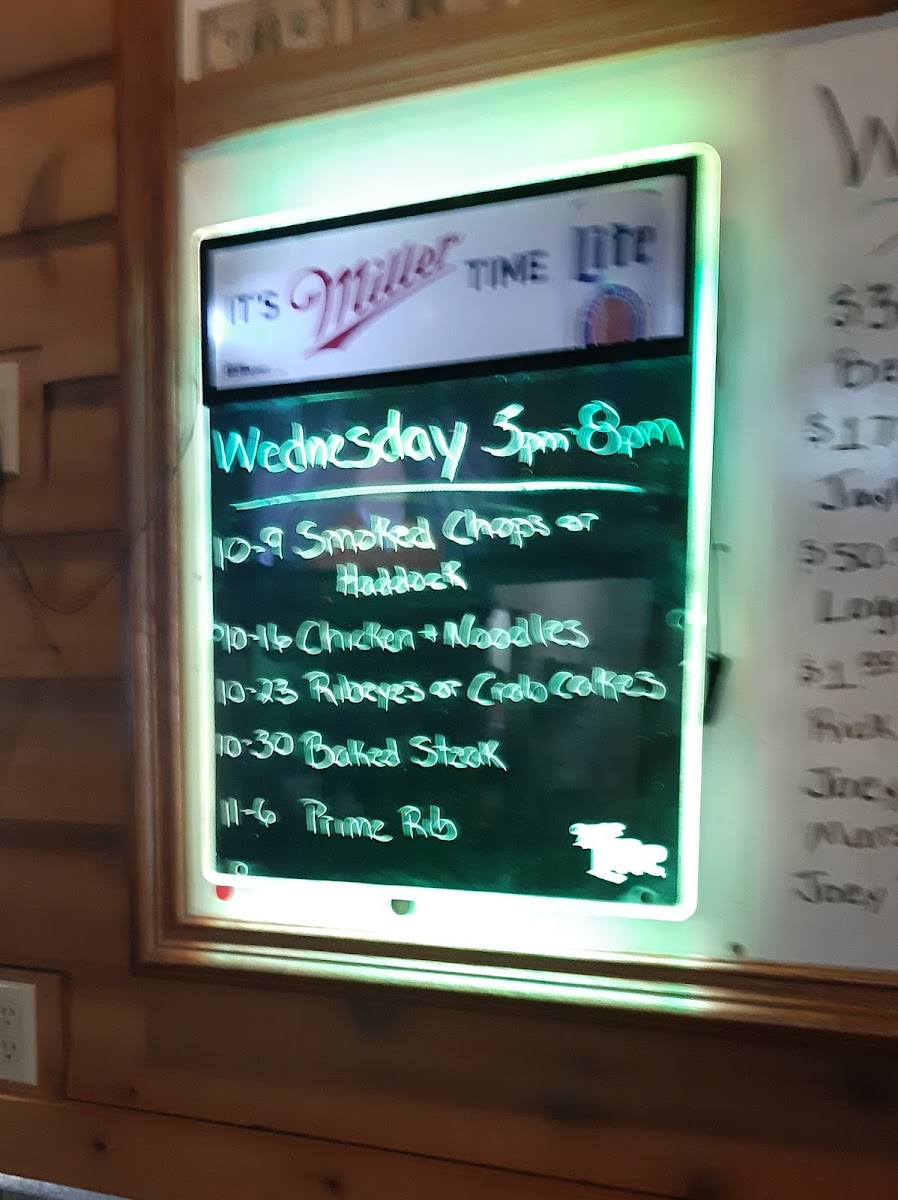 IT'S Miller TIME Lite
Wednesday 5pm-8pm
10-9 Smoked Chops or
Haddock
10-16 Chicken + Noodles
10-23 Ribeyes or Crab Cakes
10-30 Baked Steak
11-6 Prime Rib
W
$3
$17
$50.
$1.
Rick
Joey
Joey